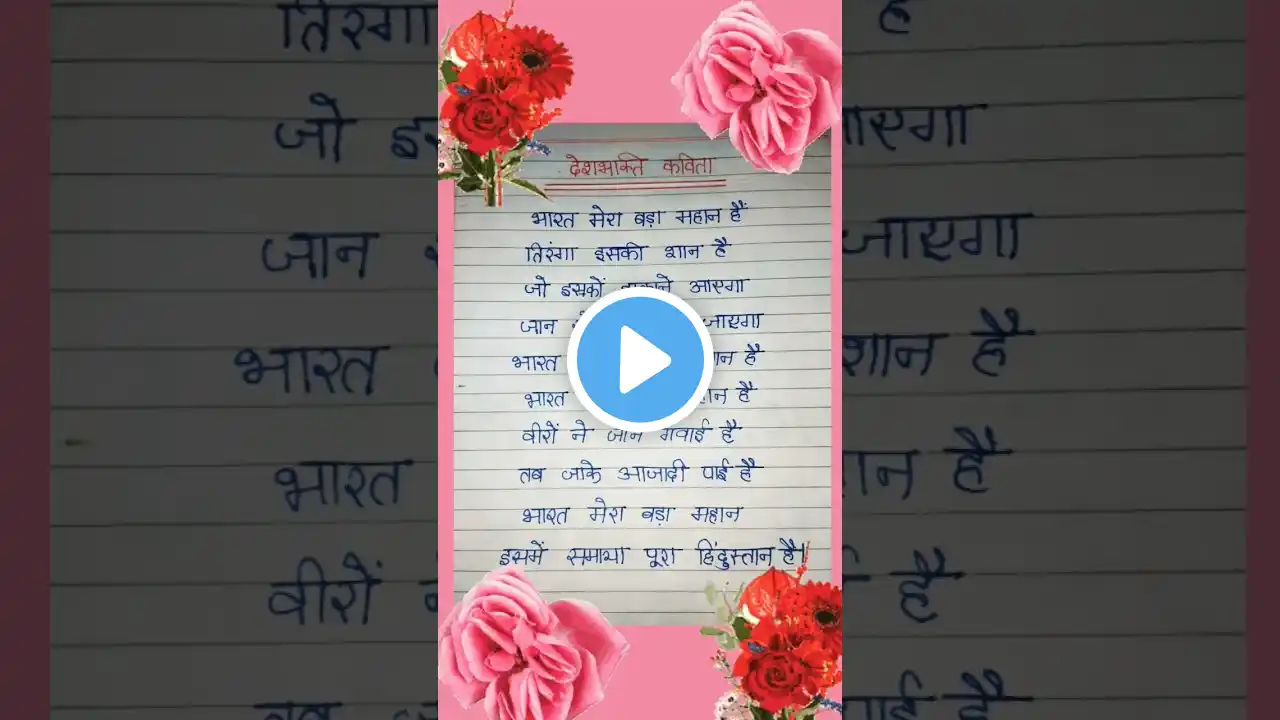 देशभक्ति कविता
भारत मेरा बड़ा महान हैं
तिरंगा इसकी शान है
जो इसकों आएगा
जान जाएगा
भारत है
भारत है
वीरों ने जान गवाई है
तब जाके आजादी पाई है
भारत मेरा बड़ा महान
इसमें समाया पूरा हिंदुस्तान है।